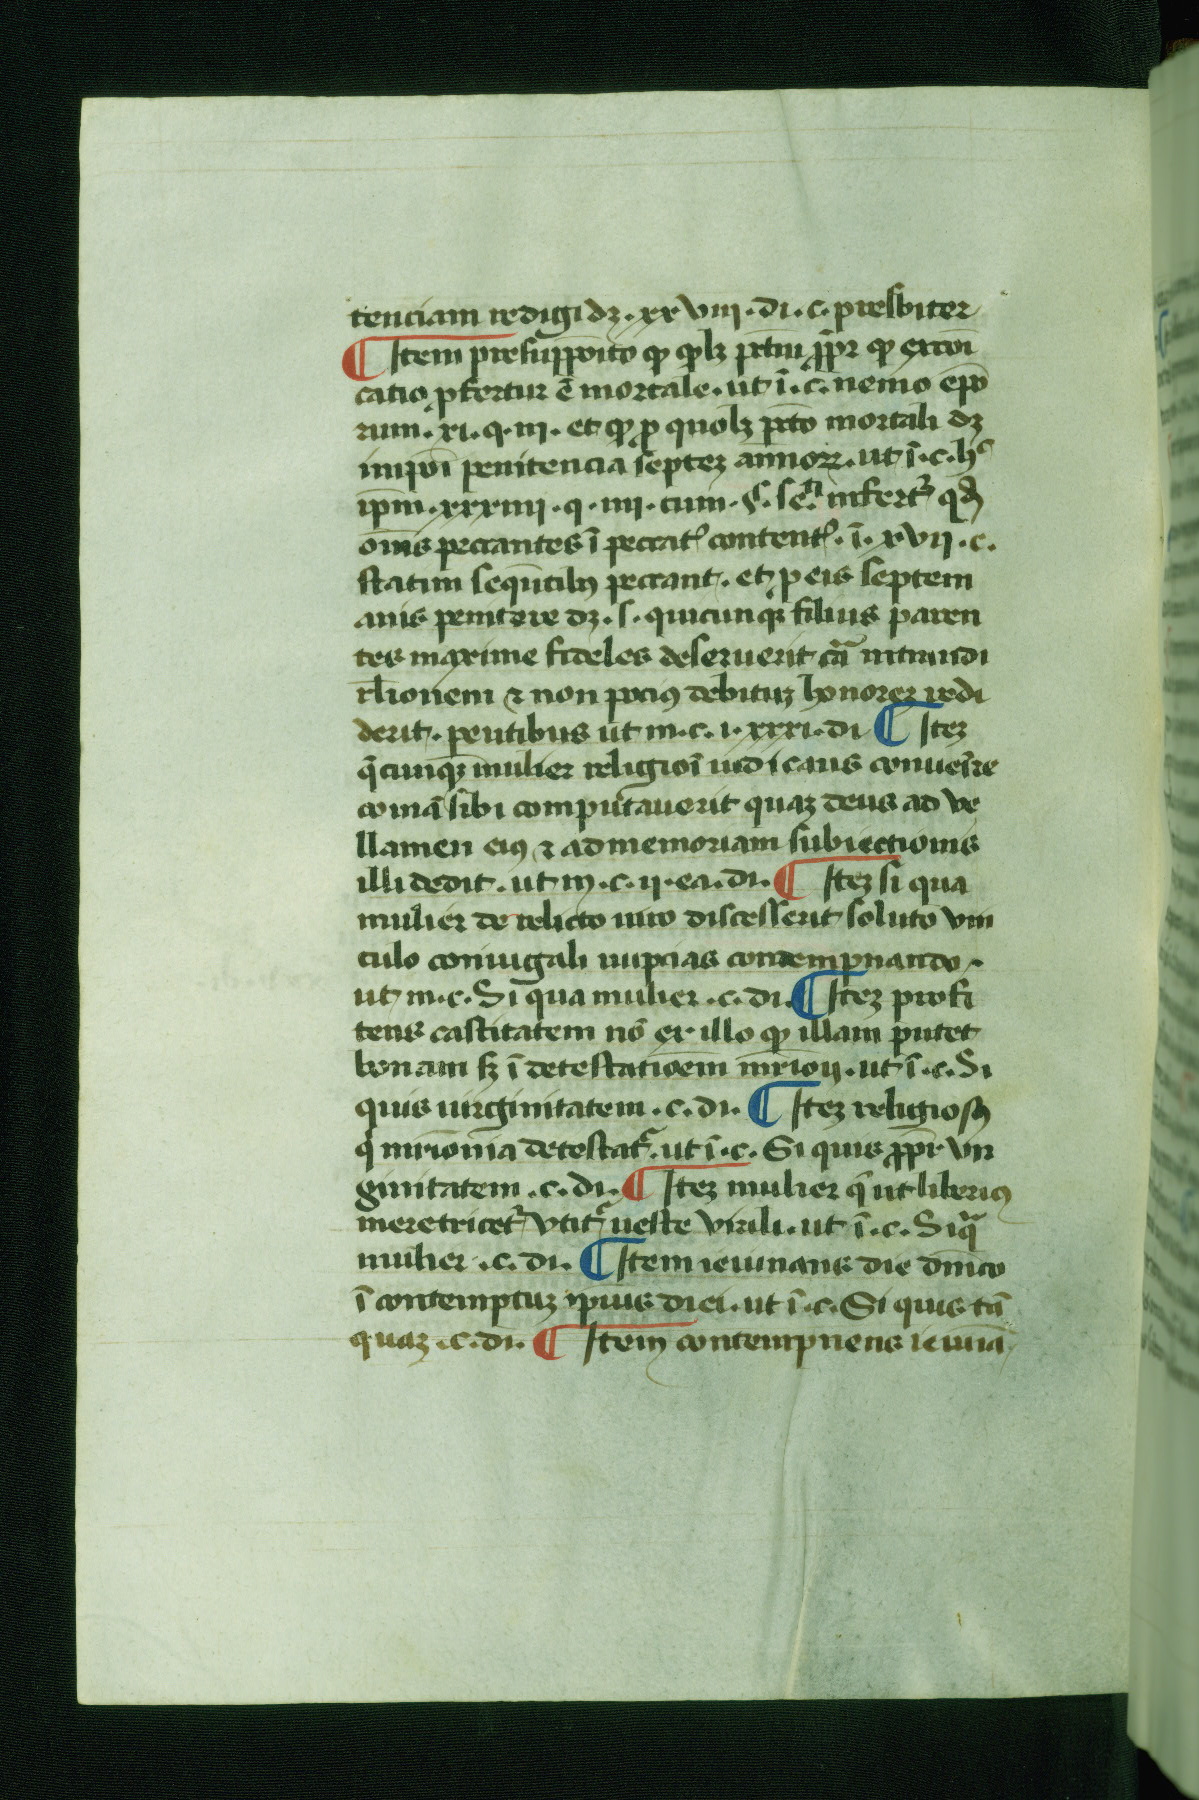 tenciam redigi dꝫ · xxviii · di · c · presbiter
¶ Item presuppoīto ꝙ ꝙlꝫ pctm̄ ꝓpr̄ ꝙ excōi
catio ꝓfertur ē mortale · ut ī · c · nemo ep̄o
rum · xi · q · iii · et ꝙ ꝓ quolꝫ pctō mortali dꝫ
inponi penitencia septeꝫ annorꝝ · ut ī · c · hͨ
ip̄m · xxxiii · q · iiii · cum · § · se · infertʳ qd
om̄s peccantes ī peccatꝭ contentꝭ · ī · xvii · c ·
statim sequētibꝰ peccant · et ꝑ eis septem
anis penitere dꝫ · s · quicunqꝫ filius paren
tes maxime fideles deseruerit cā intuendi
rl̄ionem ⁊ non pociꝰ debituꝫ honoreꝫ redi
derit · pentibus ut in · c · i · xxxi · di ¶ Iteꝫ
q̄cunqꝫ mulier religioī iudicans convēire
comā sibi computaverit quaꝫ deus ad ve
llamen eiꝰ ⁊ ad memoriam subiectionis
illi dedit · ut in · c · ii · ea · di · ¶ Iteꝫ si qua
mulier derelicto viro discesserit soluto vin
culo coniugali nupcias contempnando ·
ut in · c · Si qua mulier · c · di · ¶ Iteꝫ profi
tens castitatem nō ex illo ꝙ illam putet
bonam sꝫ ī detestatioēm mr̄ionij · ut ī · c · Si
quis virginitatem · c · di · ¶ Iteꝫ religiosꝰ
qͥ mr̄ionia detestatʳ · ut ī · c · Si quis ꝓpr̄ vir
ginitatem · c · di · ¶ Iteꝫ mulier q̄ ut liberiꝰ
meretricetʳ vtitʳ veste virili · ut ī · c · Si qͣ
mulier · c · di · ¶ Item ieiunans die dn̄ico
ī contemptuꝫ ipsius diei · ut ī · c · Si quis tā
quaꝫ · c · di · ¶ Item contempnens ieiuniā